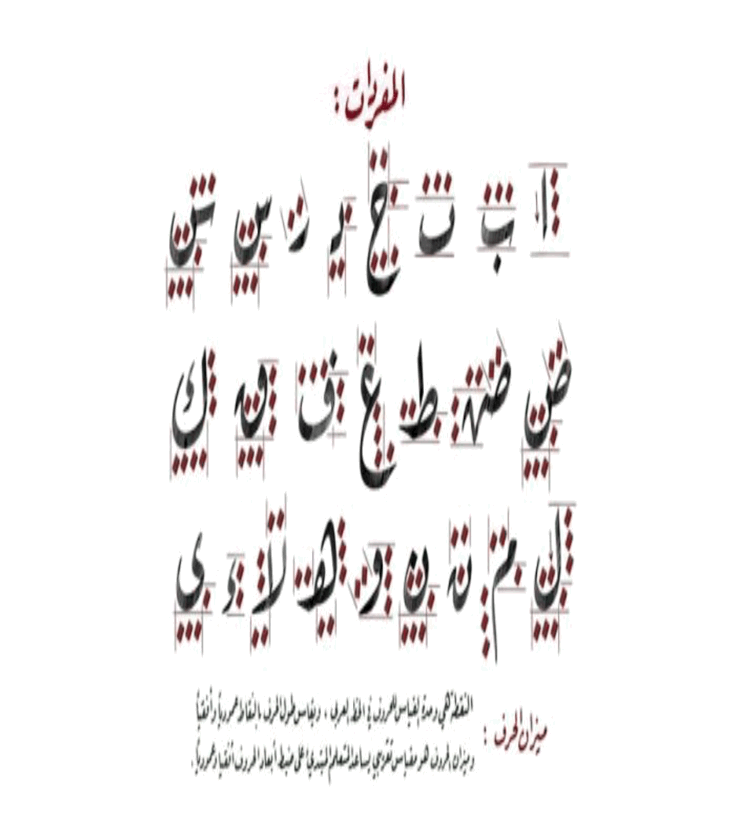 المفردات :
ا ب ت ح د ر س ش
ص صہ ط ع ف ق ك
ل م ن ن و ه لا ء ي
ميزان الحرف : النقطة هي وحدة لقياس الحروف في الخط العربي ، ويقاس طول الحرف بالنقاط عمودياً وأفقياً
وميزان الحروف هو مقياس تقريبي يساعد المتعلم المبتدئ على ضبط أبعاد الحروف أفقيا وعمودياً .